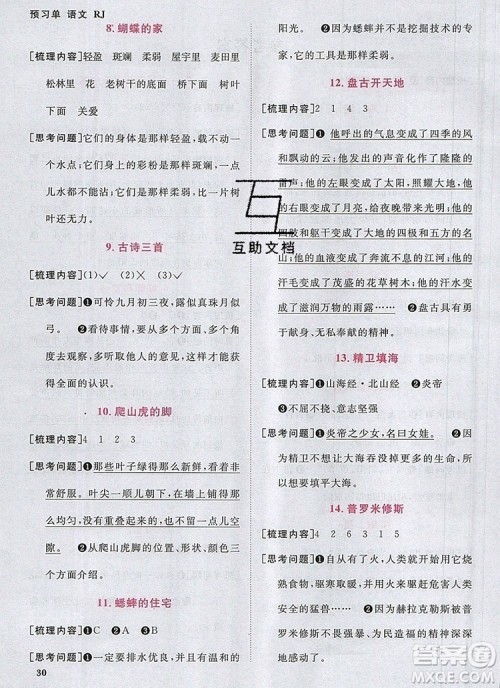 预习单 语文 RJ
8. 蝴蝶的家
[梳理内容] 轻盈 斑斓 柔弱 屋宇里 麦田里
松林里 花 老树干的底面 桥下面 树叶
下面 关爱
[思考问题] ❶它们的身体是那样轻盈,不能驮动一
个水点;它们身上的彩粉是那样斑斓,一点
儿水都不能沾;它们是那样柔弱,比一片树
叶还无力。
9. 古诗三首
[梳理内容] (1)✓ (2)✓ (3)✓
[思考问题] ❶可怜九月初三夜,露似真珠月似
弓。 ❷看待事物,要从不同方面、多个角
度去观察,多听取他人的意见,才能获得更
全面的认识。
10. 爬山虎的脚
[梳理内容] 4 1 2 3
[思考问题] ❶那些叶子绿得那么新鲜,看着非
常舒服。叶尖一顺儿朝下,在墙上铺得那
么均匀,没有重叠起来的,也不留一点儿空
隙。 ❷从爬山虎脚的位置、形状、颜色三
个方面介绍。
11. 蟋蟀的住宅
[梳理内容] ❶C ❷A ❸B
[思考问题] ❶一定要排水优良,并且有温和的
30
阳光。
12. 盘古开天地
[梳理内容] 2 1 4 3
[思考问题] ❶他呼出的气息变成了四季的风
和飘动的云;他发出的声音化作了隆隆的
雷声;他的左眼变成了太阳,照耀大地;他
的右眼变成了月亮,给夜晚带来光明;他的
汗毛变成了茂盛的花草树木;他的汗水变
成了滋润万物的雨露…… ❷盘古具有勇
于献身、无私奉献的精神。
13. 精卫填海
[梳理内容] ❶山海经·北山经 ❷炎帝
❸不屈不挠、意志坚强
[思考问题] ❶炎帝之少女,名曰女娃。 ❷因
为精卫不想让大海吞噬更多的生命,所以
它要填平大海。
14. 普罗米修斯
[梳理内容] 1 2 4 6 3 5
[思考问题] ❶自从有了火,人类就开始用它烧
熟食物,驱寒取暖,并用火来驱赶危害人类
安全的猛兽…… ❷因为赫拉克勒斯被普
罗米修斯不屈不挠、坚持正义的崇高品质
深深地感动了。
互助文档